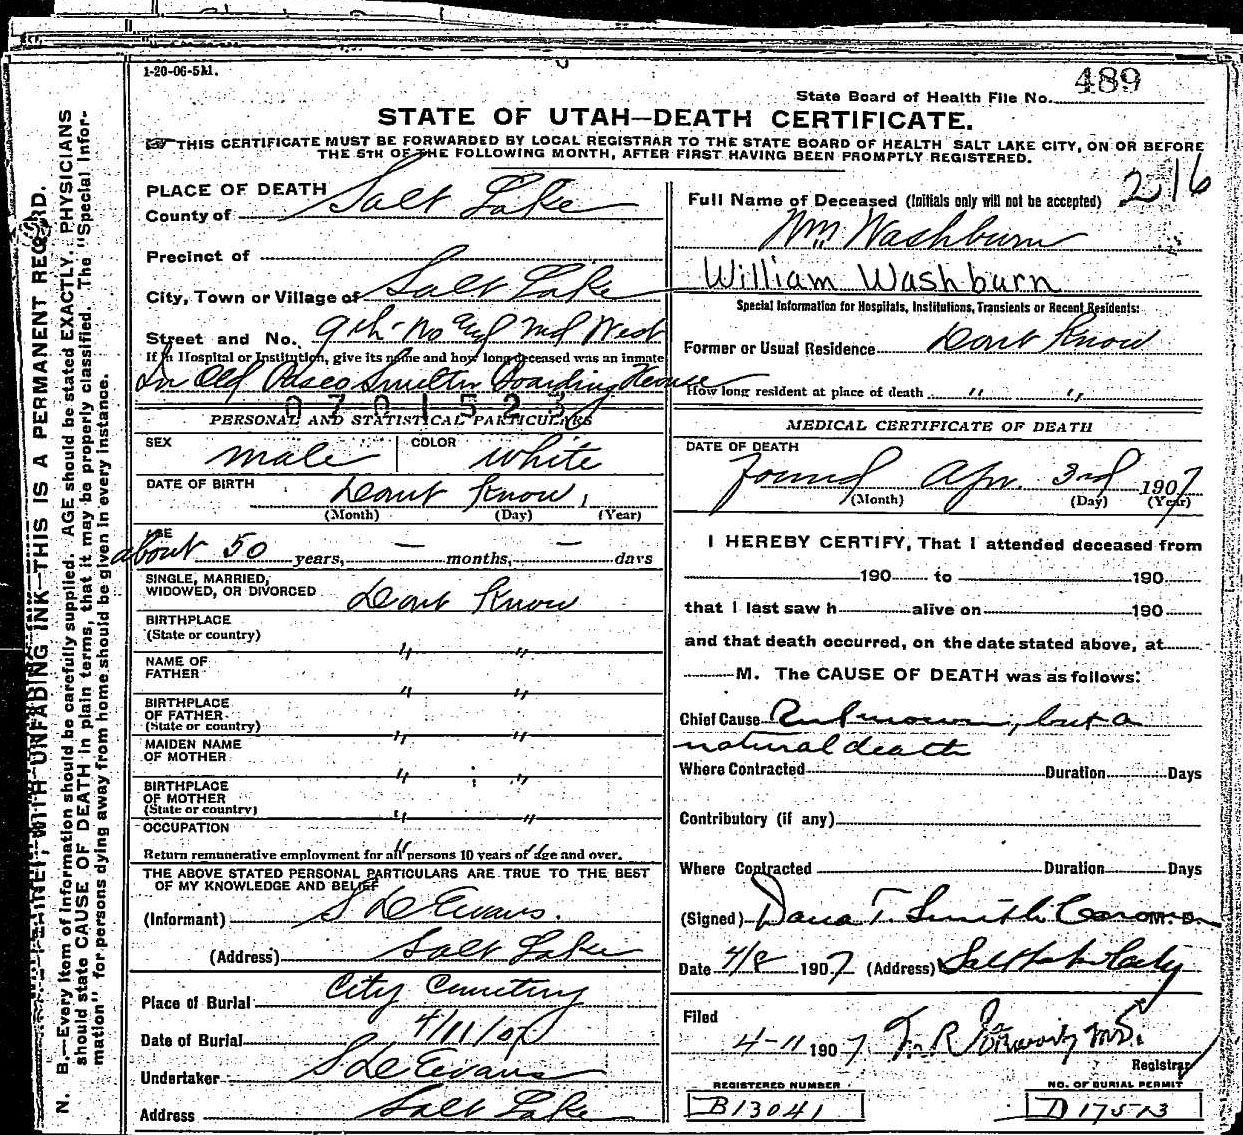 1-20-06-5M.
State Board of Health File No. 489
STATE OF UTAH—DEATH CERTIFICATE.
THIS CERTIFICATE MUST BE FORWARDED BY LOCAL REGISTRAR TO THE STATE BOARD OF HEALTH SALT LAKE CITY, ON OR BEFORE
THE 5TH OF THE FOLLOWING MONTH, AFTER FIRST HAVING BEEN PROMPTLY REGISTERED.
N. B.—Every item of information should be carefully supplied. AGE should be stated EXACTLY. PHYSICIANS
should state CAUSE OF DEATH in plain terms, that it may be properly classified. The "Special Infor-
mation" for persons dying away from home should be given in every instance.
WITH UNFADING INK—THIS IS A PERMANENT RECORD.
PLACE OF DEATH
County of Salt Lake
Precinct of
City, Town or Village of Salt Lake
Street and No. 9th No West
If in Hospital or Institution, give its name and how long deceased was an inmate
In Old Pasco Smelter Boarding House
0701523
PERSONAL AND STATISTICAL PARTICULARS
SEX male COLOR white
DATE OF BIRTH Dont Know,
(Month) (Day) (Year)
AGE about 50 years, — months, — days
SINGLE, MARRIED,
WIDOWED, OR DIVORCED Dont Know
BIRTHPLACE
(State or country) " "
NAME OF
FATHER " "
BIRTHPLACE
OF FATHER
(State or country) " "
MAIDEN NAME
OF MOTHER " "
BIRTHPLACE
OF MOTHER
(State or country) " "
OCCUPATION
Return remunerative employment for all persons 10 years of age and over. " "
THE ABOVE STATED PERSONAL PARTICULARS ARE TRUE TO THE BEST
OF MY KNOWLEDGE AND BELIEF
(Informant) S D Evans.
(Address) Salt Lake
Place of Burial City Cemetery
Date of Burial 4/11/07
Undertaker S D Evans
Address Salt Lake
216
Full Name of Deceased (Initials only will not be accepted)
Wm Washburn
William Washburn
Special Information for Hospitals, Institutions, Transients or Recent Residents:
Former or Usual Residence Dont Know
How long resident at place of death " "
MEDICAL CERTIFICATE OF DEATH
DATE OF DEATH
Found Apr. 3rd 1907
(Month) (Day) (Year)
I HEREBY CERTIFY, That I attended deceased from
190 to 190
that I last saw h alive on 190
and that death occurred, on the date stated above, at
M. The CAUSE OF DEATH was as follows:
Chief Cause Unknown, but a
natural death
Where Contracted Duration Days
Contributory (if any)
Where Contracted Duration Days
(Signed) Dana T. Smith Coroner M. D.
Date 4/8 1907 (Address) Salt Lake City
Filed
4-11 1907 M.D.
Registrar
REGISTERED NUMBER
B13041
NO. OF BURIAL PERMIT
D17513